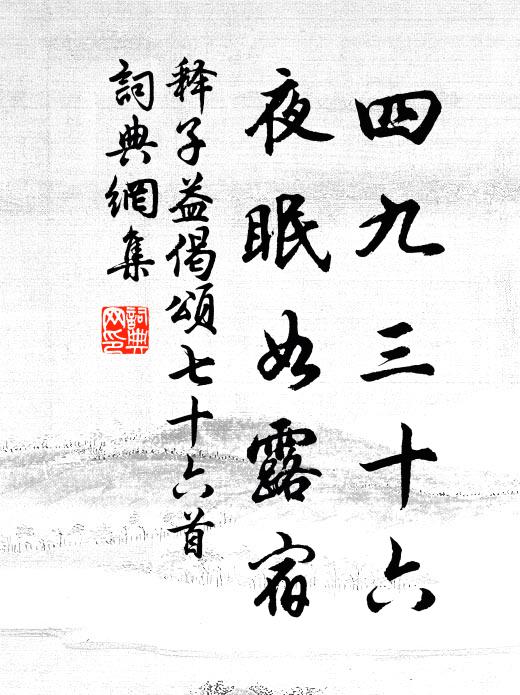 四九三十六
夜眠如露宿
释子益偈頌七十六首
詞典網集
詞典网印